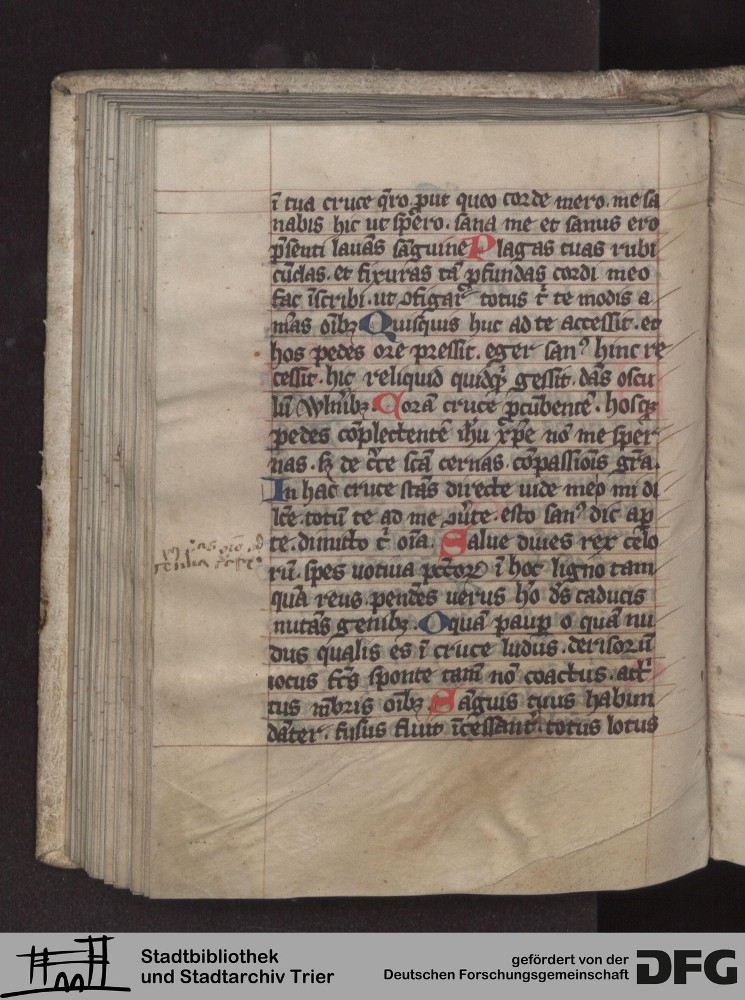 ī tua cruce q̄ro. put queo corde mero. me sa
nabis hic ut sp̄ero. sana me et sanus ero
p̄senti lauās sāguine Plagas tuas rubi
cūdas. et fixuras tā pfundas cordi meo
fac īscribi. ut ɔfigar totus t̄ te modis a
mās oībꝫ Quisquis huc ad te accessit. et
hos pedes ore pressit. eger san⁹ hinc re
cessit. hic reliquid quidq̄ gessit. dās oscu
lū whībꝫ. Corā cruce pcūbentē. hosqꝫ
pedes cōplectentē ihū xp̄e nō me sper
nas. sꝫ de c̄ce scā cernas. cōpassiōis gr̄a.
In hac cruce stās directe uide meo mi di
lc̄e. totū te ad me ɔuʳte. esto san⁹ dic ap
te. dimitto t̄ oīa. Salue diues rex celo
rū. spes uotiua pc̄toꝝ ī hoc ligno tam
quā reus. pendēs uerus ho d̄s caducis
nutās genibꝫ. O quā paup o quā nu
dus qualis es ī cruce ludus. derisoriū
iocus fc̄s sponte tam̄ nō coactus. att
tus mb̄ris oībꝫ Sāguis tuus habun
dāter. fusus fluit īcessant. totus lotus
Stadtbibliothek
und Stadtarchiv Trier
gefördert von der
Deutschen Forschungsgemeinschaft
DFG